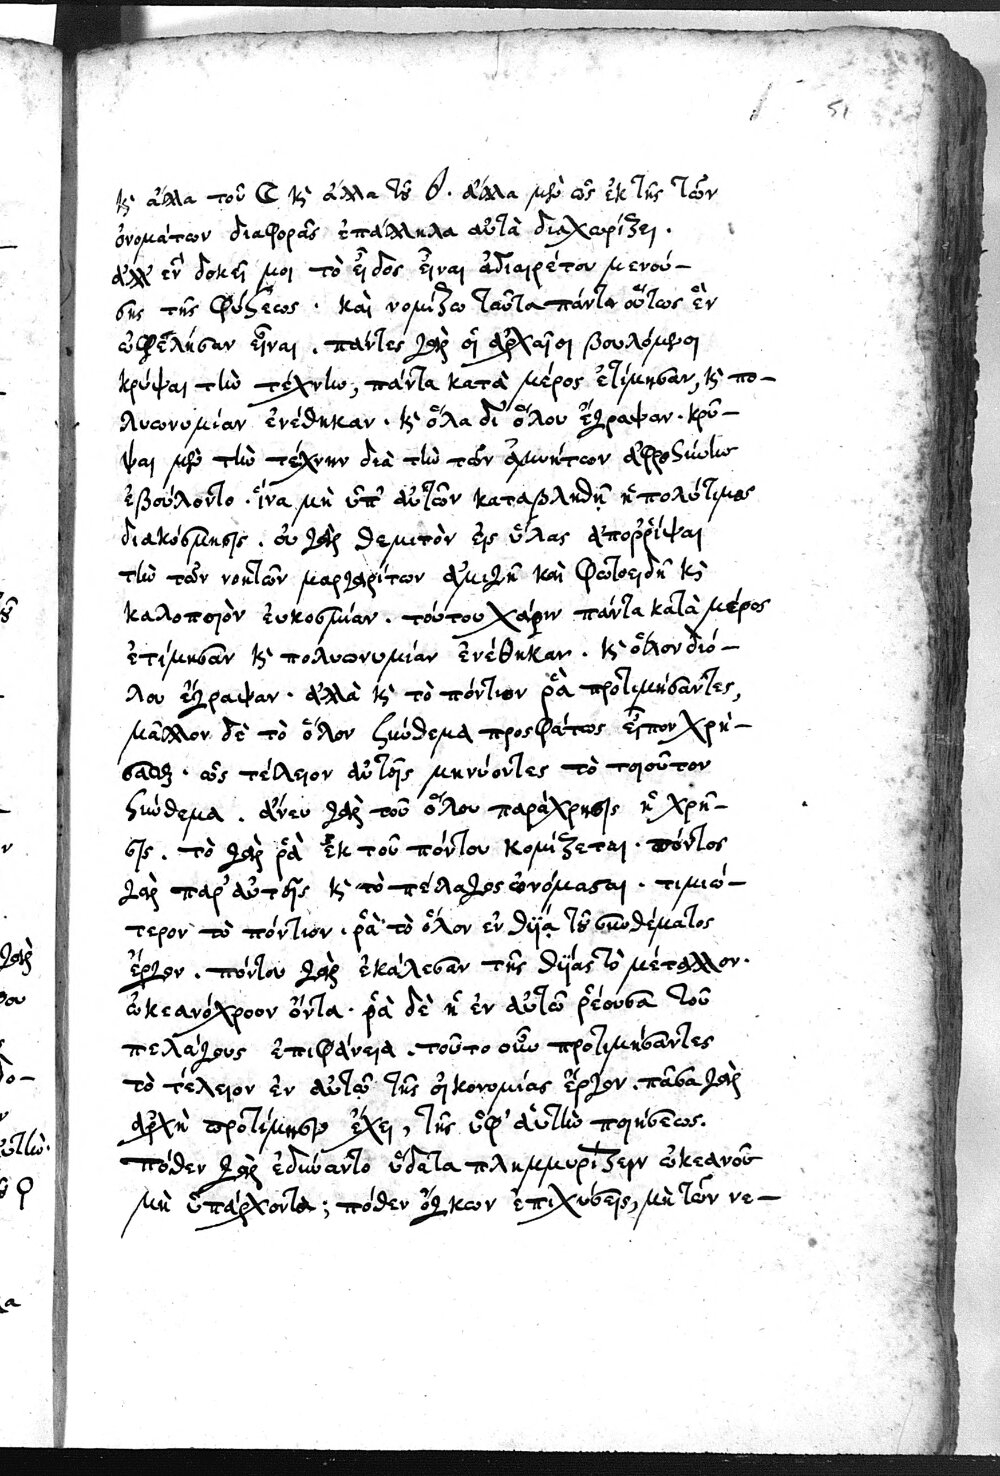 51
κ̀ ἄλλα τοῦ C κ̀ ἄλλα τοῦ θ. ἄλλα μὲν ὡς ἐκ τῆς τῶν
ὀνομάτων διαφορᾶς ἐπάλληλα αὐτὰ διαχωρίζει.
ἀλλ' ἓν δοκεῖ μοι τὸ εἶδος εἶναι ἀδιαιρέτου μενού-
σης τῆς φύσεως. καὶ νομίζω ταῦτα πάντα οὕτως ἓν
ὠφέλησαν εἶναι. πάντες γὰρ οἱ ἀρχαῖοι βουλόμενοι
κρύψαι τὴν τέχνην, πάντα κατὰ μέρος ἐτίμησαν, κ̀ πο-
λυωνυμίαν ἐνέθηκαν. κ̀ ὅλα δι' ὅλου ἔγραψαν. κρύ-
ψαι μὲν τὴν τέχνην διὰ τὴν τῶν ἀμυήτων ἀφροσύνην
ἐβούλοντο. ἵνα μὴ ὑπ' αὐτῶν καταβληθῇ ἡ πολύτιμος
διακόσμησις. οὐ γὰρ θεμιτὸν εἰς ὕλας ἀπορρίψαι
τὴν τῶν νοητῶν μαργαρίτων ἀμιγῆ καὶ φωτοειδῆ κ̀
καλοποιὸν εὐκοσμίαν. τούτου χάριν πάντα κατὰ μέρος
ἐτίμησαν κ̀ πολυωνυμίαν ἐνέθηκαν. κ̀ ὅλον διό-
λου ἔγραψαν. ἀλλὰ κ̀ τὸ πόντιον ῥᾶ προτιμήσαντες,
μᾶλλον δὲ τὸ ὅλον σύνθεμα προσφάτως εἶπον χρή-
σασθαι. ὡς τέλειον αὐτοῖς μηνύοντες τὸ τοιοῦτον
σύνθεμα. ἄνευ γὰρ τοῦ ὅλου παράχρησις ἡ χρῆ-
σις. τὸ γὰρ ῥᾶ ἐκ τοῦ πόντου κομίζεται. πόντος
γὰρ παρ' αὐτοῖς κ̀ τὸ πέλαγος ὠνόμασται. τιμιώ-
τερον τὸ πόντιον. ῥᾶ τὸ ὅλον ἐν θυΐᾳ τοῦ συνθέματος
ἔργον. πόντον γὰρ ἐκάλεσαν τῆς θυΐας τὸ μέταλλον.
ὠκεανόχροον ὄντα. ῥᾶ δὲ ἡ ἐν αὐτῶ ῥέουσα τοῦ
πελάγους ἐπιφάνεια. τοῦτο οὖν προτιμήσαντες
τὸ τέλειον ἐν αὐτῷ τῆς οἰκονομίας ἔργον. πᾶσα γὰρ
ἀρχὴ προτίμησιν ἔχει, τῆς ὑφ' αὑτὴν ποιήσεως.
πόθεν γὰρ ἐδύναντο ὕδατα πλημμυρίζειν ὠκεανοῦ
μὴ ὑπάρχοντος; πόθεν ὄγκων ἐπιχύσεις, μὴ τῶν νε-